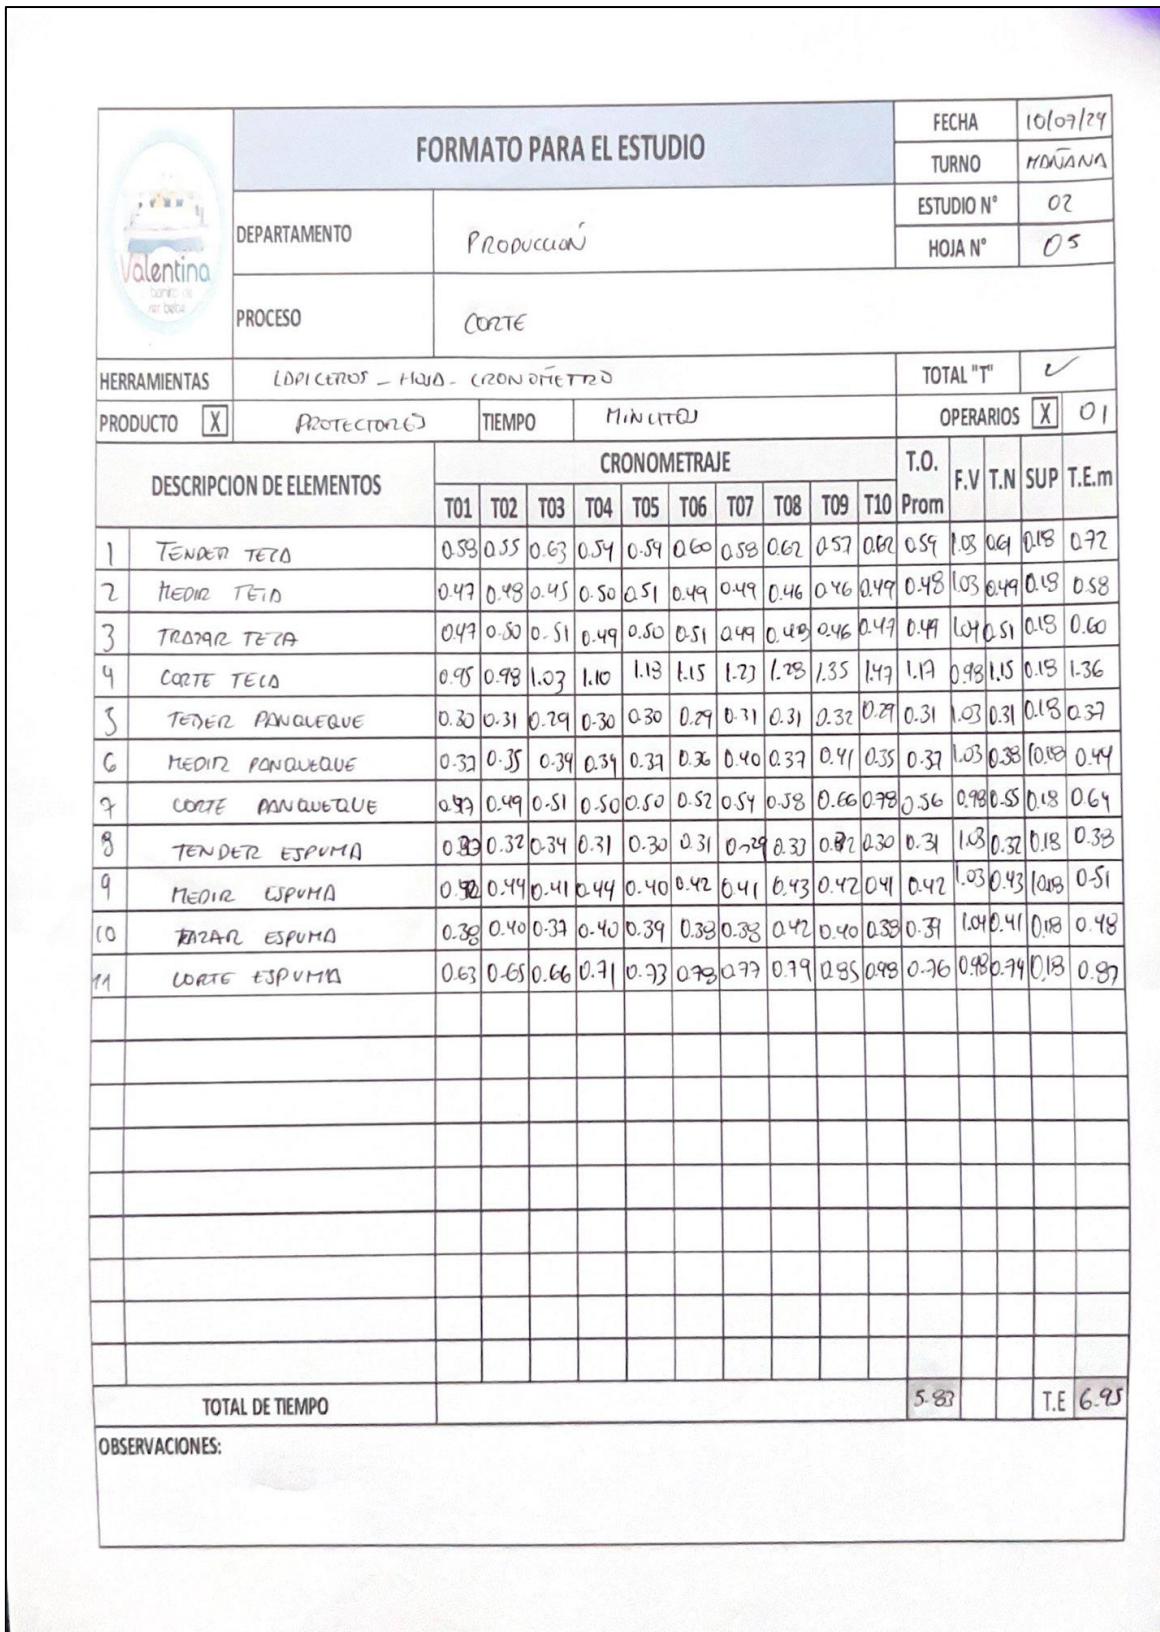 FORMATO PARA EL ESTUDIO
FECHA 10/07/24
TURNO MAÑANA
ESTUDIO N° 02
HOJA N° 05
Valentina
bonito de
ser bebé
DEPARTAMENTO PRODUCCIÓN
PROCESO CORTE
HERRAMIENTAS LAPICEROS - HOJA - CRONOMETRO TOTAL "T" ✓
PRODUCTO X PROTECTORES TIEMPO MINUTOS OPERARIOS X 01
DESCRIPCION DE ELEMENTOS CRONOMETRAJE T.O. Prom F.V T.N SUP T.E.m
T01 T02 T03 T04 T05 T06 T07 T08 T09 T10
1 TENDER TELA 0.58 0.55 0.63 0.54 0.59 0.60 0.58 0.62 0.57 0.62 0.59 1.03 0.61 0.18 0.72
2 MEDIR TELA 0.47 0.48 0.45 0.50 0.51 0.49 0.49 0.46 0.46 0.49 0.48 1.03 0.49 0.18 0.58
3 TRAZAR TELA 0.47 0.50 0.51 0.49 0.50 0.51 0.49 0.48 0.46 0.47 0.49 1.04 0.51 0.18 0.60
4 CORTE TELA 0.95 0.98 1.03 1.10 1.13 1.15 1.23 1.28 1.35 1.47 1.17 0.98 1.15 0.18 1.36
5 TEDER PANQUEQUE 0.30 0.31 0.29 0.30 0.30 0.29 0.31 0.31 0.32 0.29 0.31 1.03 0.31 0.18 0.37
6 MEDIR PANQUEQUE 0.37 0.35 0.34 0.34 0.37 0.36 0.40 0.37 0.41 0.35 0.37 1.03 0.38 0.18 0.44
7 CORTE PANQUEQUE 0.47 0.49 0.51 0.50 0.50 0.52 0.54 0.58 0.66 0.78 0.56 0.98 0.55 0.18 0.64
8 TENDER ESPUMA 0.32 0.34 0.31 0.30 0.31 0.29 0.33 0.32 0.30 0.31 1.03 0.32 0.18 0.38
9 MEDIR ESPUMA 0.44 0.41 0.44 0.40 0.42 0.41 0.43 0.42 0.41 0.42 1.03 0.43 0.18 0.51
10 TAZAR ESPUMA 0.38 0.40 0.37 0.40 0.39 0.38 0.38 0.42 0.40 0.38 0.39 1.04 0.41 0.18 0.48
11 CORTE ESPUMA 0.63 0.65 0.66 0.71 0.73 0.78 0.77 0.79 0.85 0.98 0.76 0.98 0.74 0.18 0.87
TOTAL DE TIEMPO 5.83 T.E 6.95
OBSERVACIONES: